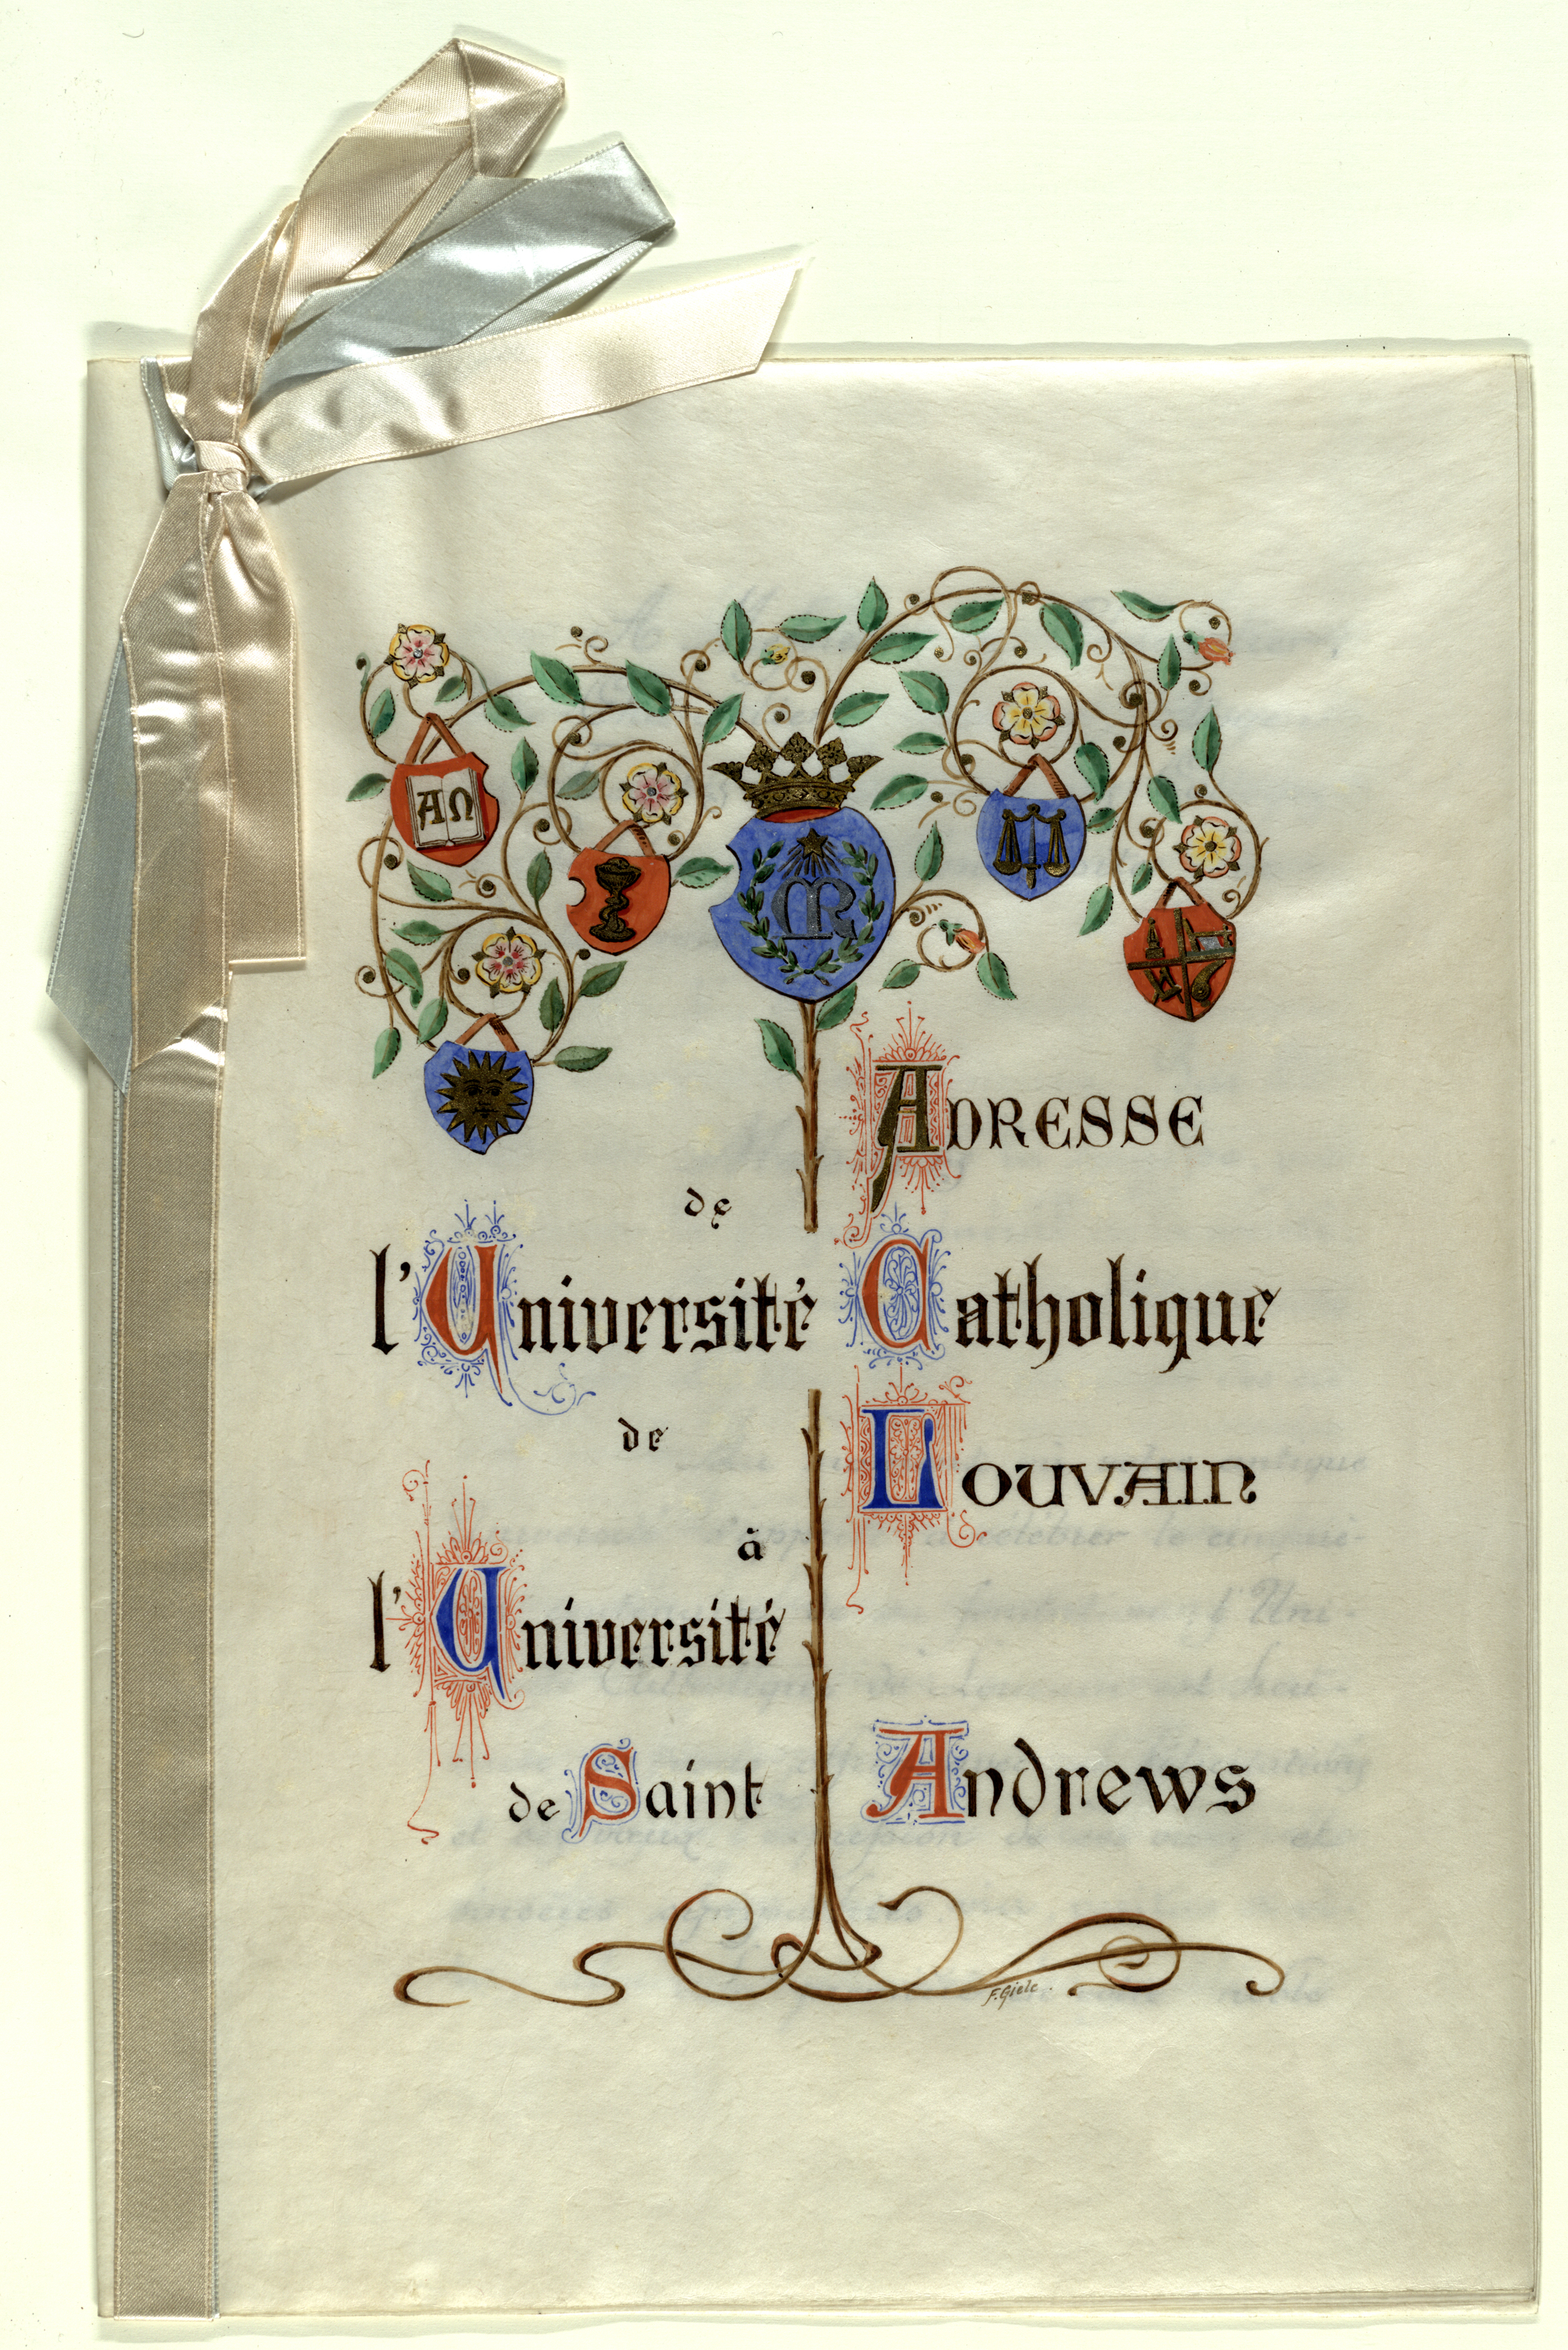 AΩ
MR
ADRESSE
de
l'Université Catholique
de LOUVAIN
à
l'Université
de Saint Andrews
F. Giele.